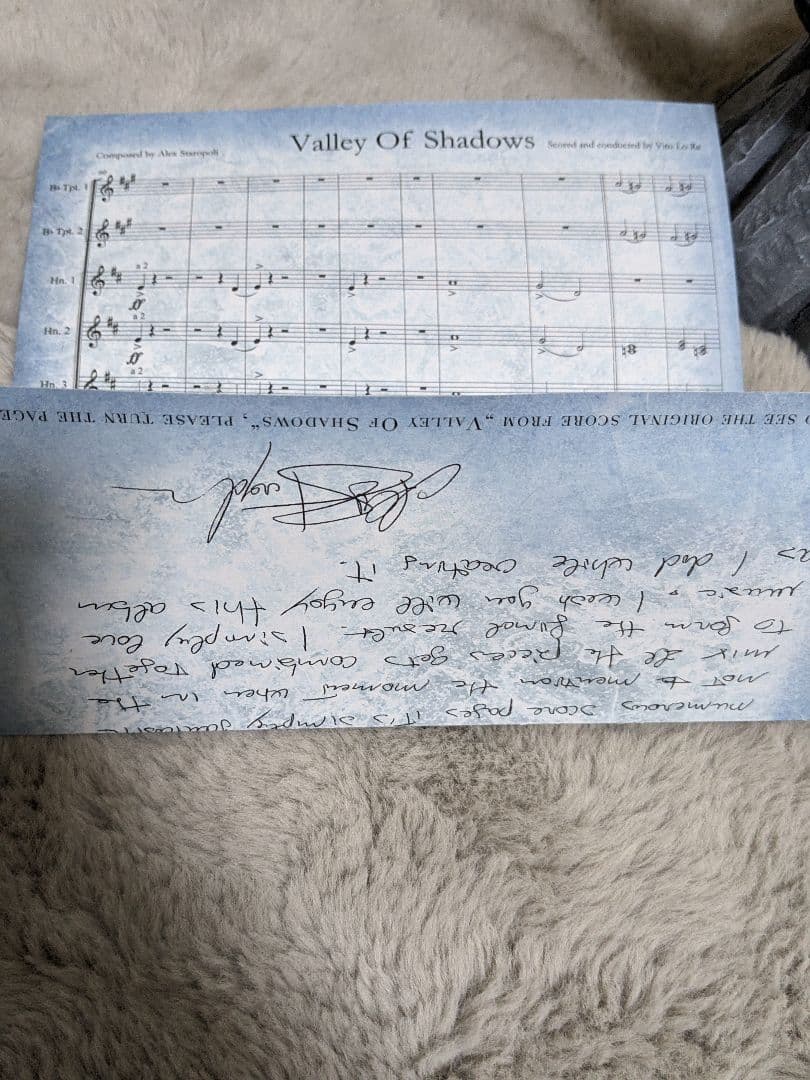 Valley Of Shadows
Composed by Alex Staropoli
Scored and conducted by Vito Lo Re
B♭ Tpt. 1
B♭ Tpt. 2
Hn. 1
a 2
ff
Hn. 2
a 2
ff
Hn. 3
a 2
numerous score pages it's simply
not to mention the moment when in the
mix all the pieces gets combined together
to form the final result. I simply love
music. I wish you will enjoy this album
as I did while creating it.
SEE THE ORIGINAL SCORE FROM „VALLEY OF SHADOWS“, PLEASE TURN THE PAGE